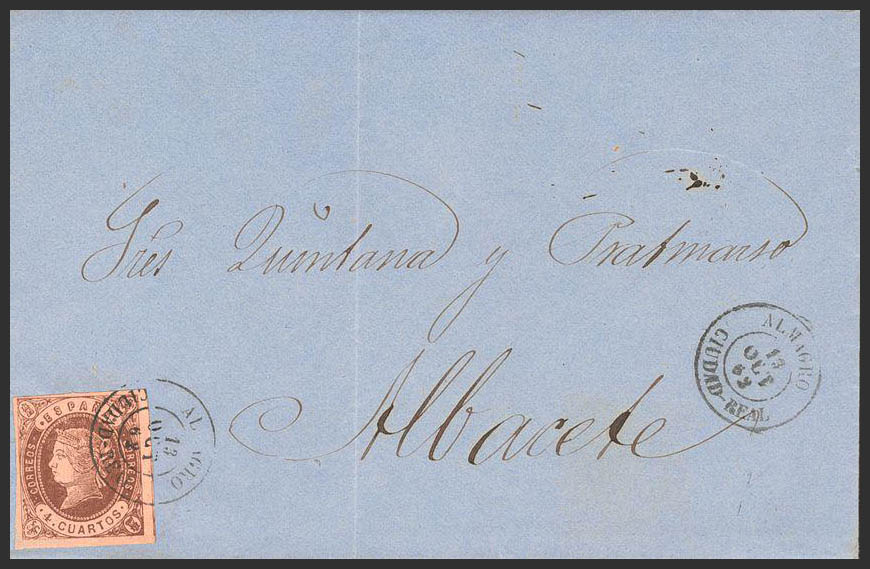 Sres Quintana y Pratmarso
Albacete
ALMAGRO
13
OCT
62
CIUDAD-REAL
ESPAÑA
CORREOS
CORREOS
4 CUARTOS
AL AGRO
13
OCT
CIUDAD-R